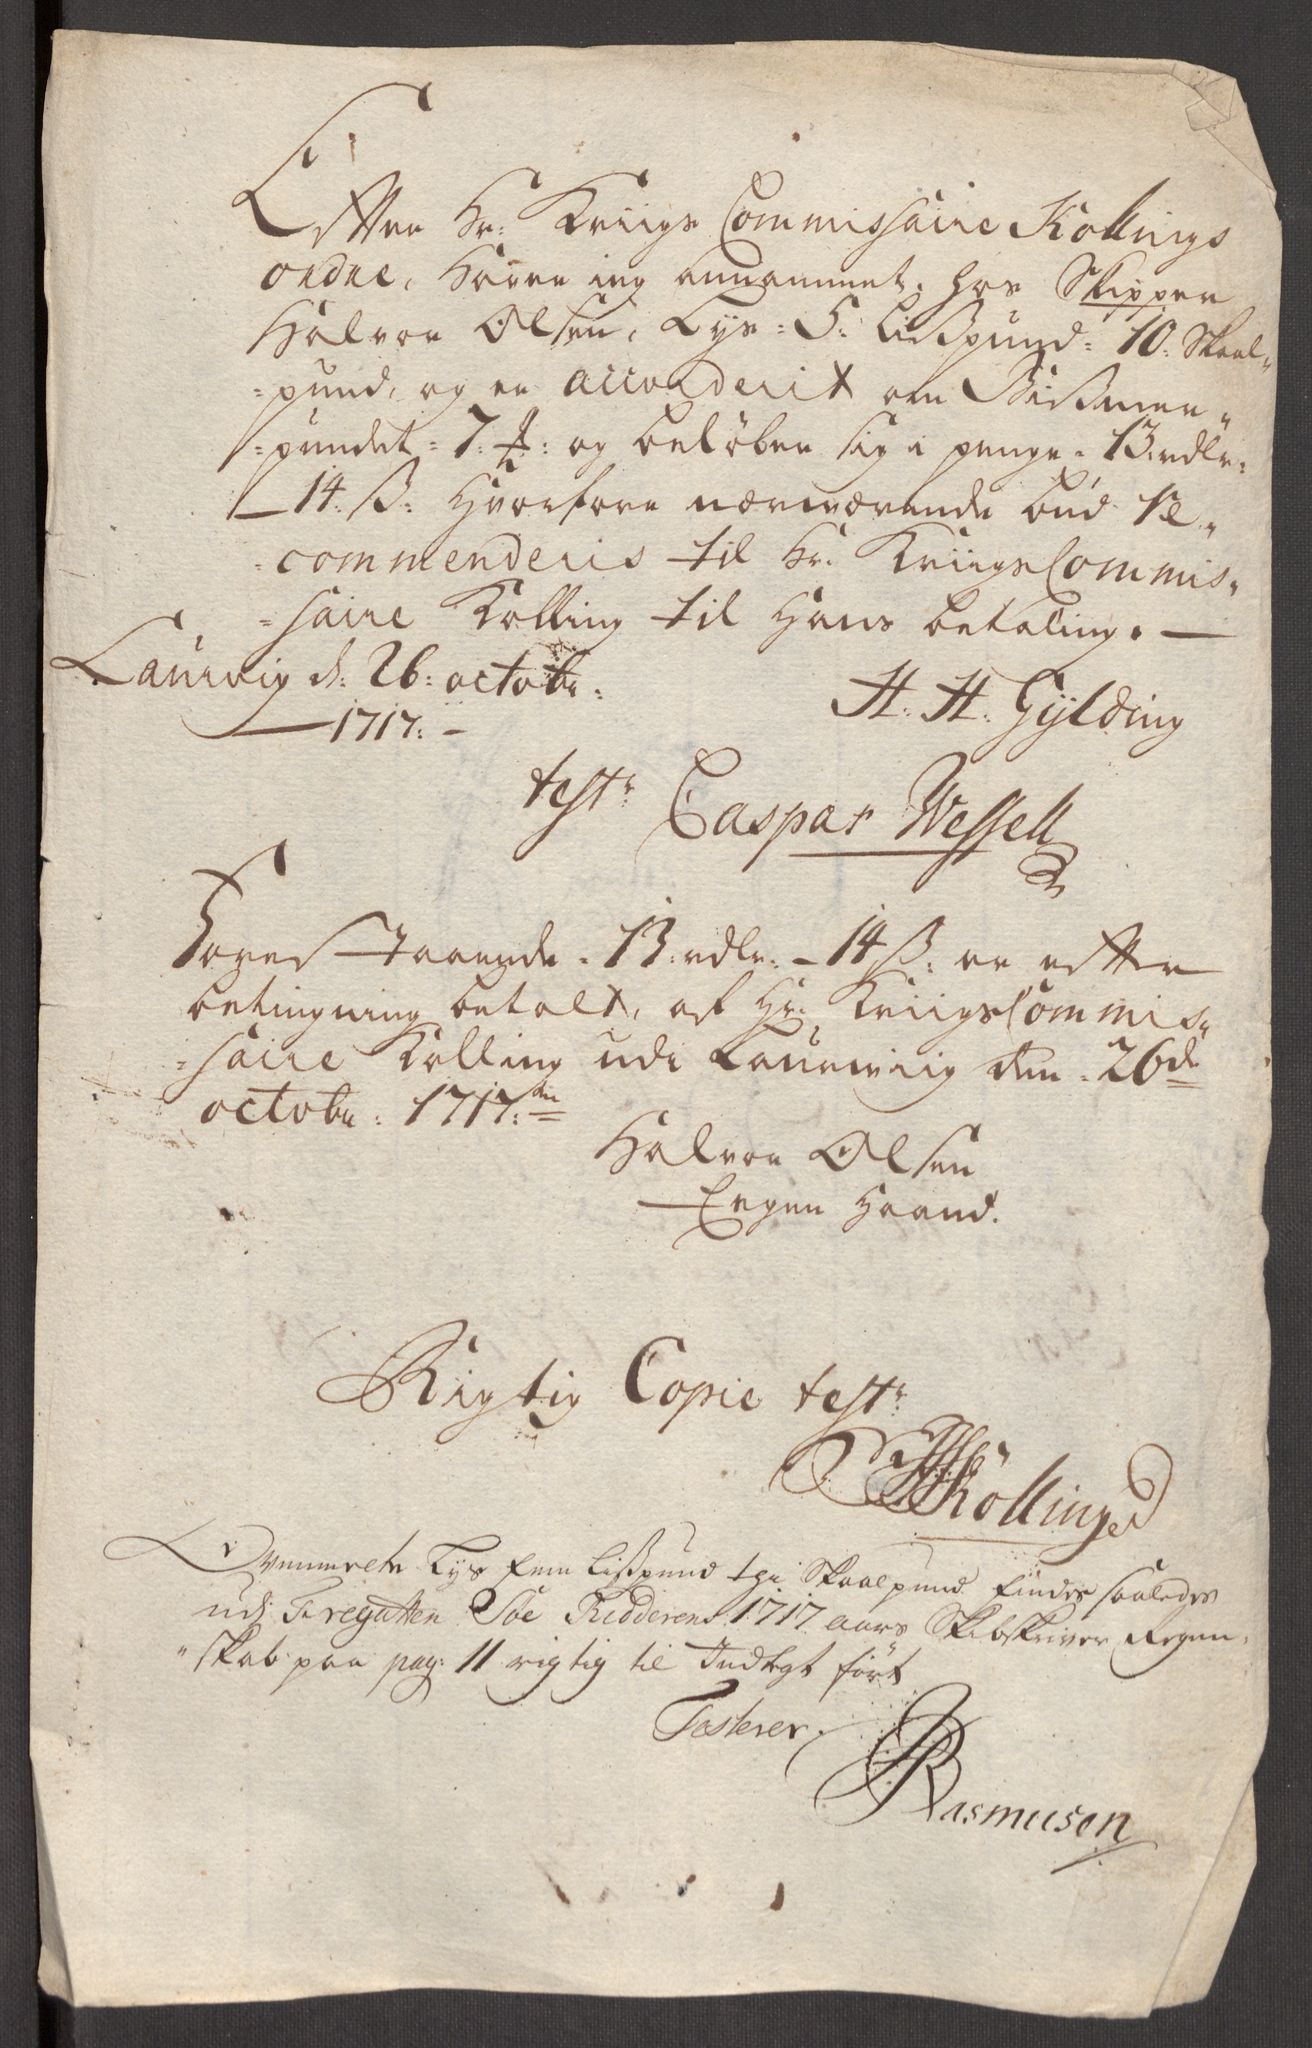 Efter Hr: Kriigs Commissaire Kollings
ordre, Haver ieg annammet, hos Skipper
Halvor Olsen, Lys = 5: Lißpund = 10: Skaal-
=pund, og er accorderit om Bißmer-
=pundet = 7: og beløber sig i penge = 13: rdlr:
14: ß: Hvorfore nærværende bud re-
=commenderis til Hr: KriigsCommis-
=saire Kolling til Hans betaling. —
Laurvig d: 26: octobr:
1717: -
H. H. Gÿlding
testr Caspar Wessell
Forestaaende = 13: rdlr: - 14 ß: er efter
betingning betalt, af Hr: KriigsCommis-
=saire Kolling udi Laurwiig den = 26de
octobr: 1717:
Halvor Olsen
Eegen Haand.
Rigtig Copie testr
Kölling
Ovenmelte Lys fem Lißpund tj Skaalpund findes saaledes
udj Fregatten Söe Ridderens 1717 aars Skibskriver Regen-
"skab paa pag: 11 rigtig til Indtegt fört
Testerer.
Rasmusen